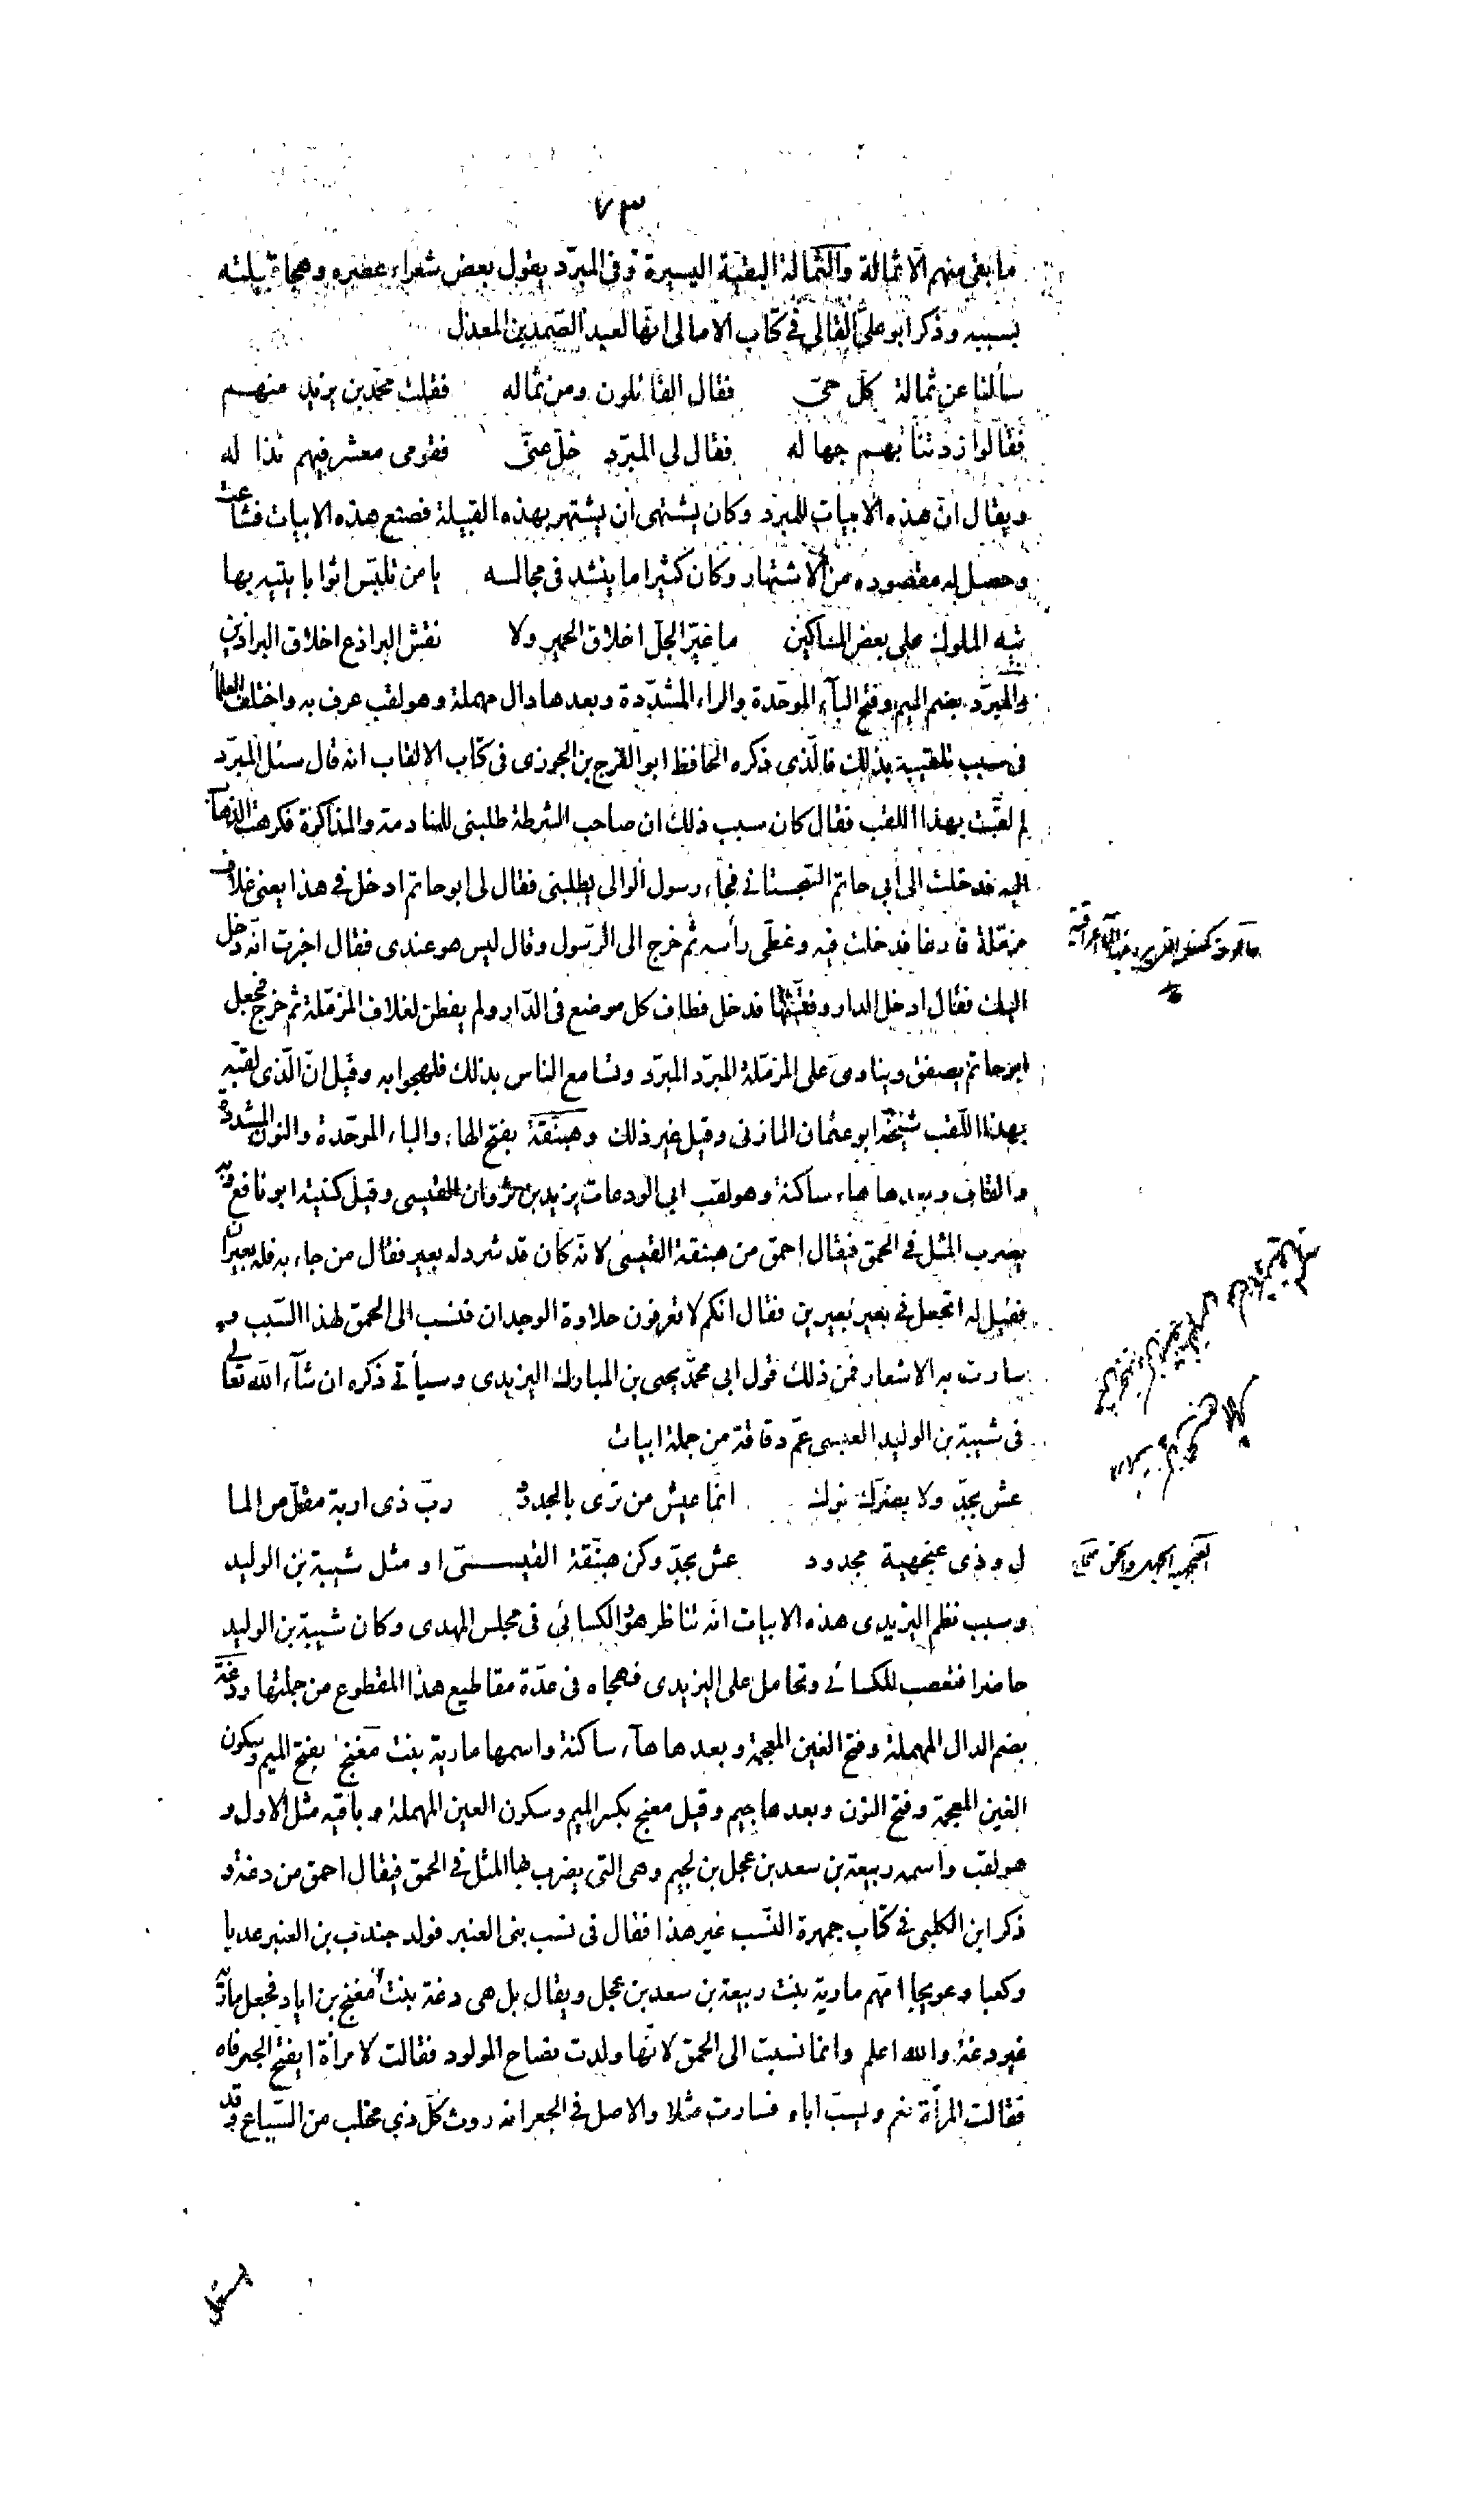 ٧٣
ما بقى منهم الا ثمالة والثمالة البقية اليسيرة وفى المبرّد يقول بعض شعراء عصره وهجا قبيلته
بسببه وذكر ابو علىّ القالى فى كتاب الامالى انها لعبد الصّمد بن المعذل
سألنا عن ثمالة كلّ حىّ فقال القائلون ومن ثماله فقلت محمّد بن يزيد منهم
فقالوا زدتنا بهم جهاله فقال لى المبرّد خلّ عنّى فقومى معشر فيهم نذاله
ويقال انّ هذه الابيات للمبرّد وكان يشتهى ان يشتهر بهذه القبيلة فصنع هذه الابيات فشاعت
وحصل له مقصوده من الاشتهار وكان كثيرا ما ينشد فى مجالسه يا من تلبّس اثوابا يتيه بها
تيه الملوك على بعض المساكين ما غيّر الجلّ اخلاق الحمير ولا نقش البراذع اخلاق البراذين
والمبرّد بضم الميم وفتح البآء الموحّدة والراء المشدّدة وبعدها دال مهملة وهو لقب عرف به واختلف العلمآ
فى سبب تلقيبه بذلك فالّذى ذكره الحافظ ابو الفرج بن الجوزى فى كتاب الالقاب انه قال سئل المبرّد
لم لقّبت بهذا اللقب فقال كان سبب ذلك ان صاحب الشرطة طلبنى للمنادمة والمذاكرة فكرهت الذهآب
اليه فدخلت الى ابى حاتم السّجستانى فجآء رسول الوالى يطلبنى فقال لى ابو حاتم ادخل فى هذا يعنى غلاف
مزمّلة فارغا فدخلت فيه وغطّى رأسه ثم خرج الى الرّسول وقال ليس هو عندى فقال اخبرت انه دخل
اليك فقال ادخل الدار وفتّشها فدخل فطاف كل موضع فى الدّار ولم يفطن لغلاف المزمّلة ثم خرج فجعل
ابو حاتم يصفق وينادى على المزمّلة المبرّد المبرّد وتسامع الناس بذلك فلهجوا به وقيل انّ الّذى لقبّه
بهذا اللّقب شيخه ابو عثمان المازنى وقيل غير ذلك وهبنّقة بفتح الهاء والباء الموحّدة والنون المشدّدة
والقاف وبعدها هاء ساكنة وهو لقب ابى الودعات يزيد بن ثروان القيسى وقيل كنيته ابو نافع وبه
يضرب المثل فى الحمق فيقال احمق من هبنقة القيسى لانّه كان قد شرد له بعير فقال من جاء به فله بعيران
فقيل له اتجعل فى بعير بعيرين فقال انكم لا تعرفون حلاوة الوجدان فنسب الى الحمق لهذا السّبب وبه
سارت به الاشعار فمن ذلك قول ابى محمّد يحيى بن المبارك اليزيدى وسيأتى ذكره ان شآء الله تعالى
فى شيبة بن الوليد العبسى عمّ دقاقة من جملة ابيات
عش بجدّ ولا يضرّك نوك انّما عيش من ترى بالجدود ربّ ذى اربة مقلّ من الما
ل وذى عنجهية مجدود عش بجدّ وكن هبنّقة القيسىّ او مثل شيبة بن الوليد
وسبب نظم اليزيدى هذه الابيات انّه تناظر هو والكسائى فى مجلس المهدى وكان شيبة بن الوليد
حاضرا فتعصب للكسائى وتحامل على اليزيدى فهجاه فى عدّة مقاطيع هذا المقطوع من جملتها ودغة
بضم الدال المهملة وفتح الغين المعجمة وبعدها هآء ساكنة واسمها مارية بنت مغنج بفتح الميم وسكون
الغين المعجمة وفتح النون وبعدها جيم وقيل معنج بكسر الميم وسكون العين المهملة وباقيه مثل الاول و
هو لقب واسمه ربيعة بن سعد بن عجل بن لجيم وهى التى يضرب بها المثل فى الحمق فيقال احمق من دغة و
ذكر ابن الكلبى فى كتاب جمهرة النّسب غير هذا فقال فى نسب بنى العنبر فولد جندب بن العنبر عديا
وكعبا وعويجا امّهم مارية بنت ربيعة بن سعد بن عجل ويقال بل هى دغة بنت مغنج بن اياد فجعل مارية
غير دغة والله اعلم وانما نسبت الى الحمق لانّها ولدت فصاح المولود فقالت لامرأة ايفتح الجعر فاه
فقالت المرأة نعم ويسبّ اباه فسارت مثلا والاصل فى الجعر انه روث كلّ ذى مخلب من السّباع وقد